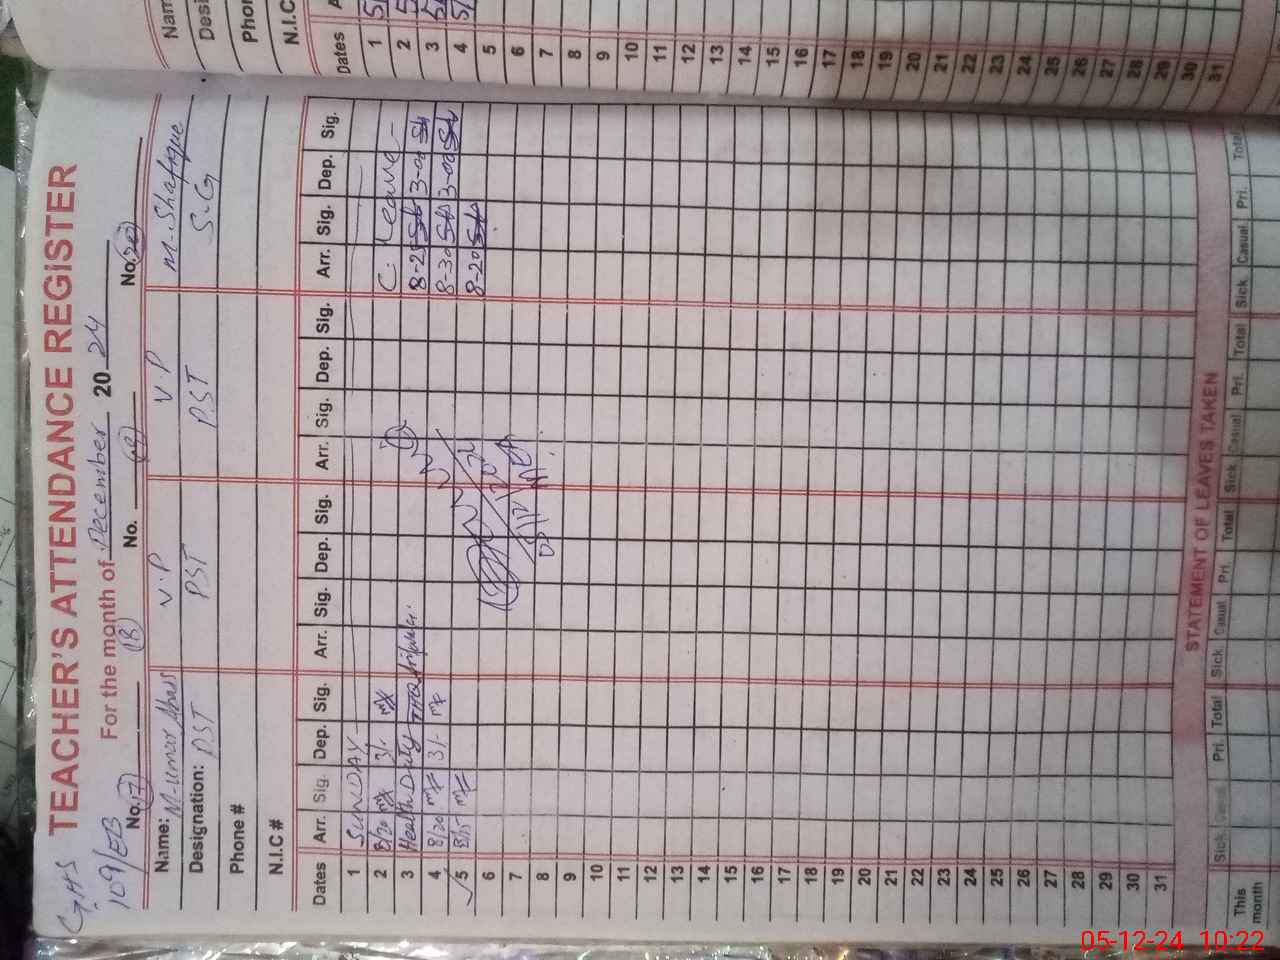 G.H.S
109/EB
TEACHER'S ATTENDANCE REGISTER
For the month of December 20 24
No. 17 No. No.
Name: M-Umar Abbas V.P V.P M-Shafique
Designation: PST PST PST S.G
Phone #
N.I.C #
Dates Arr. Sig. Dep. Sig. Arr. Sig. Dep. Sig. Arr. Sig. Dep. Sig. Arr. Sig. Dep. Sig.
1 SUNDAY
2 8/20 3/- C. Leave
3 Health Duty THQ 8-25 3-00
4 8/20 3/- 8-30 3-00
5 8/15 8-20
6
7
8
9
10
11
12
13
14
15
16
17
18
19
20
21
22
23
24
25
26
27
28
29
30
31
STATEMENT OF LEAVES TAKEN
Sick Casual Pri. Total Sick Casual Pri. Total Sick Casual Pri. Total Sick Casual Pri. Total
This month
N.I.C
Dates
1
2
3
4
5
6
7
8
9
10
11
12
13
14
15
16
17
18
19
20
21
22
23
24
25
26
27
28
29
30
31
05-12-24 10:22